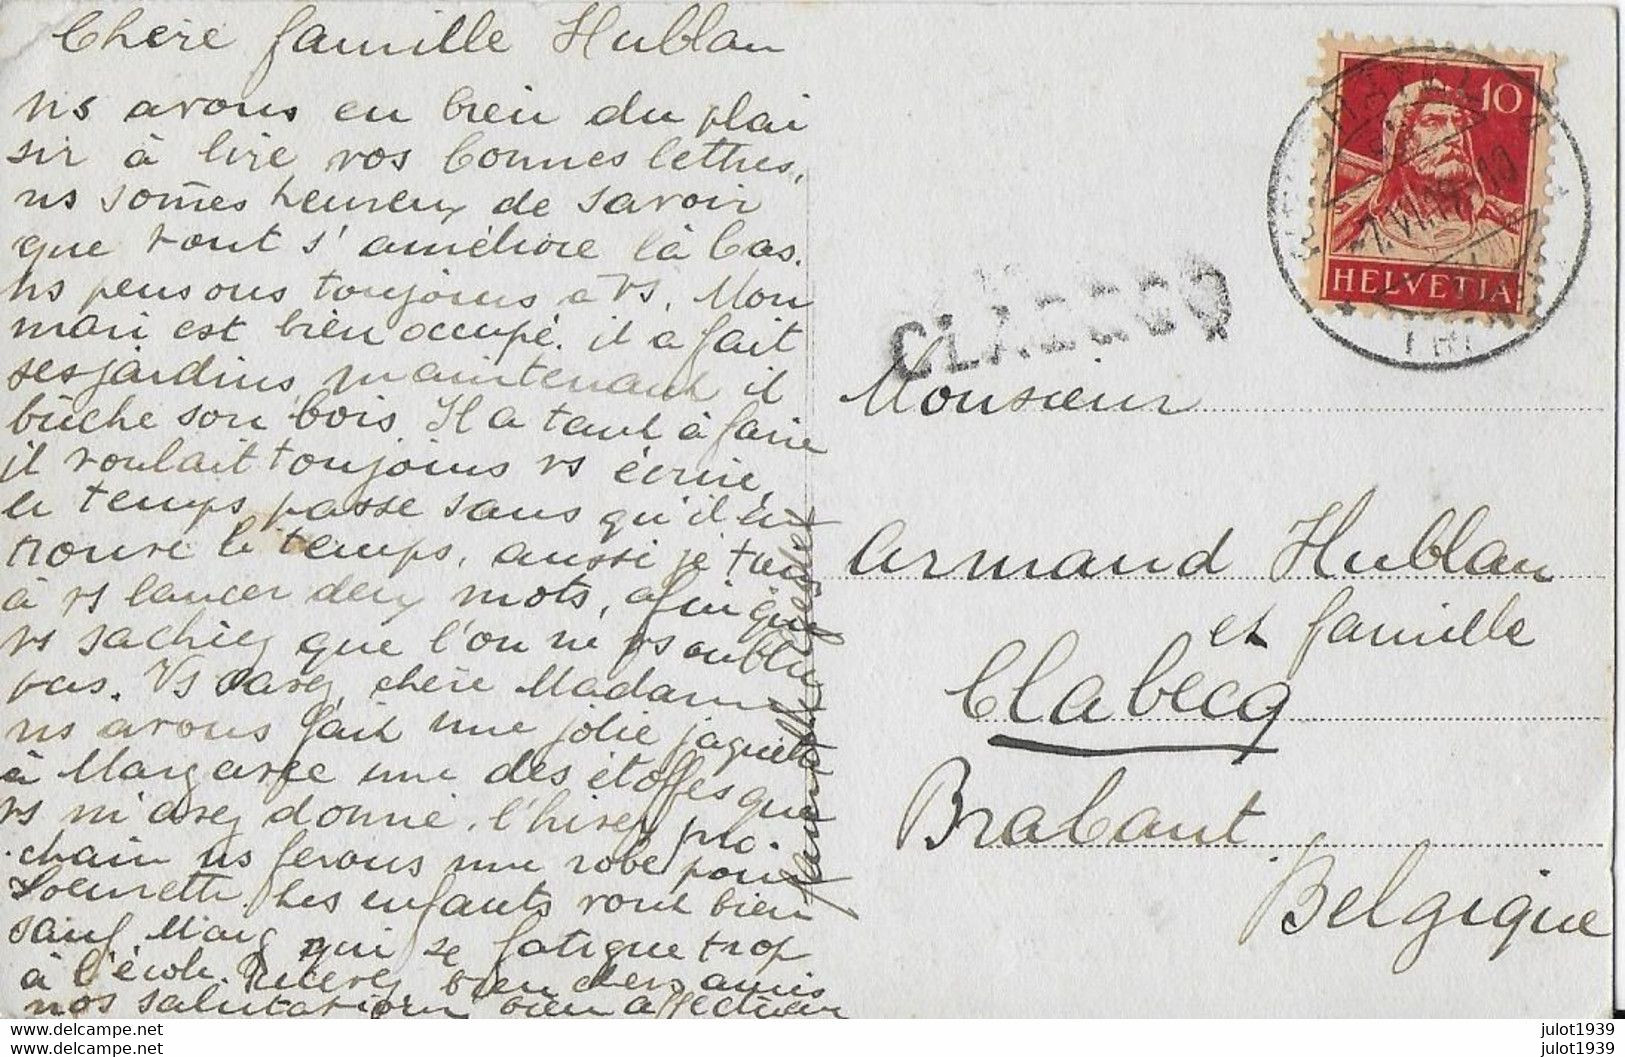 Chère famille Hublau
ns avons eu bien du plai
sir à lire vos bonnes lettres,
ns somes heureux de savoir
que tout s'améliore là bas.
ns pensons toujours à vs. Mon
mari est bien occupé. il a fait
ses jardins, maintenant il
bûche son bois. Il a tant à faire
il voulait toujours vs écrire,
le temps passe sans qu'il en
trouve le temps, aussi je
à vs lancer deux mots, afin que
vs sachiez que l'on ne vs oublie
pas. Vs savez, chère Madame
ns avons fait une jolie jaquette
à une des étoffes que
vs m'avez donné. l'hiver pro.
chain ns ferons une robe pour
Les enfants vont bien
sauf Marg qui se fatigue trop
à l'école. Recevez bien chers amis
nos salutations bien affectueu
10
HELVETIA
CLABECQ
Monsieur
Armand Hublau
et famille
Clabecq
Brabant.
Belgique
www.delcampe.net
www.delcampe.net
julot1939
julot1939